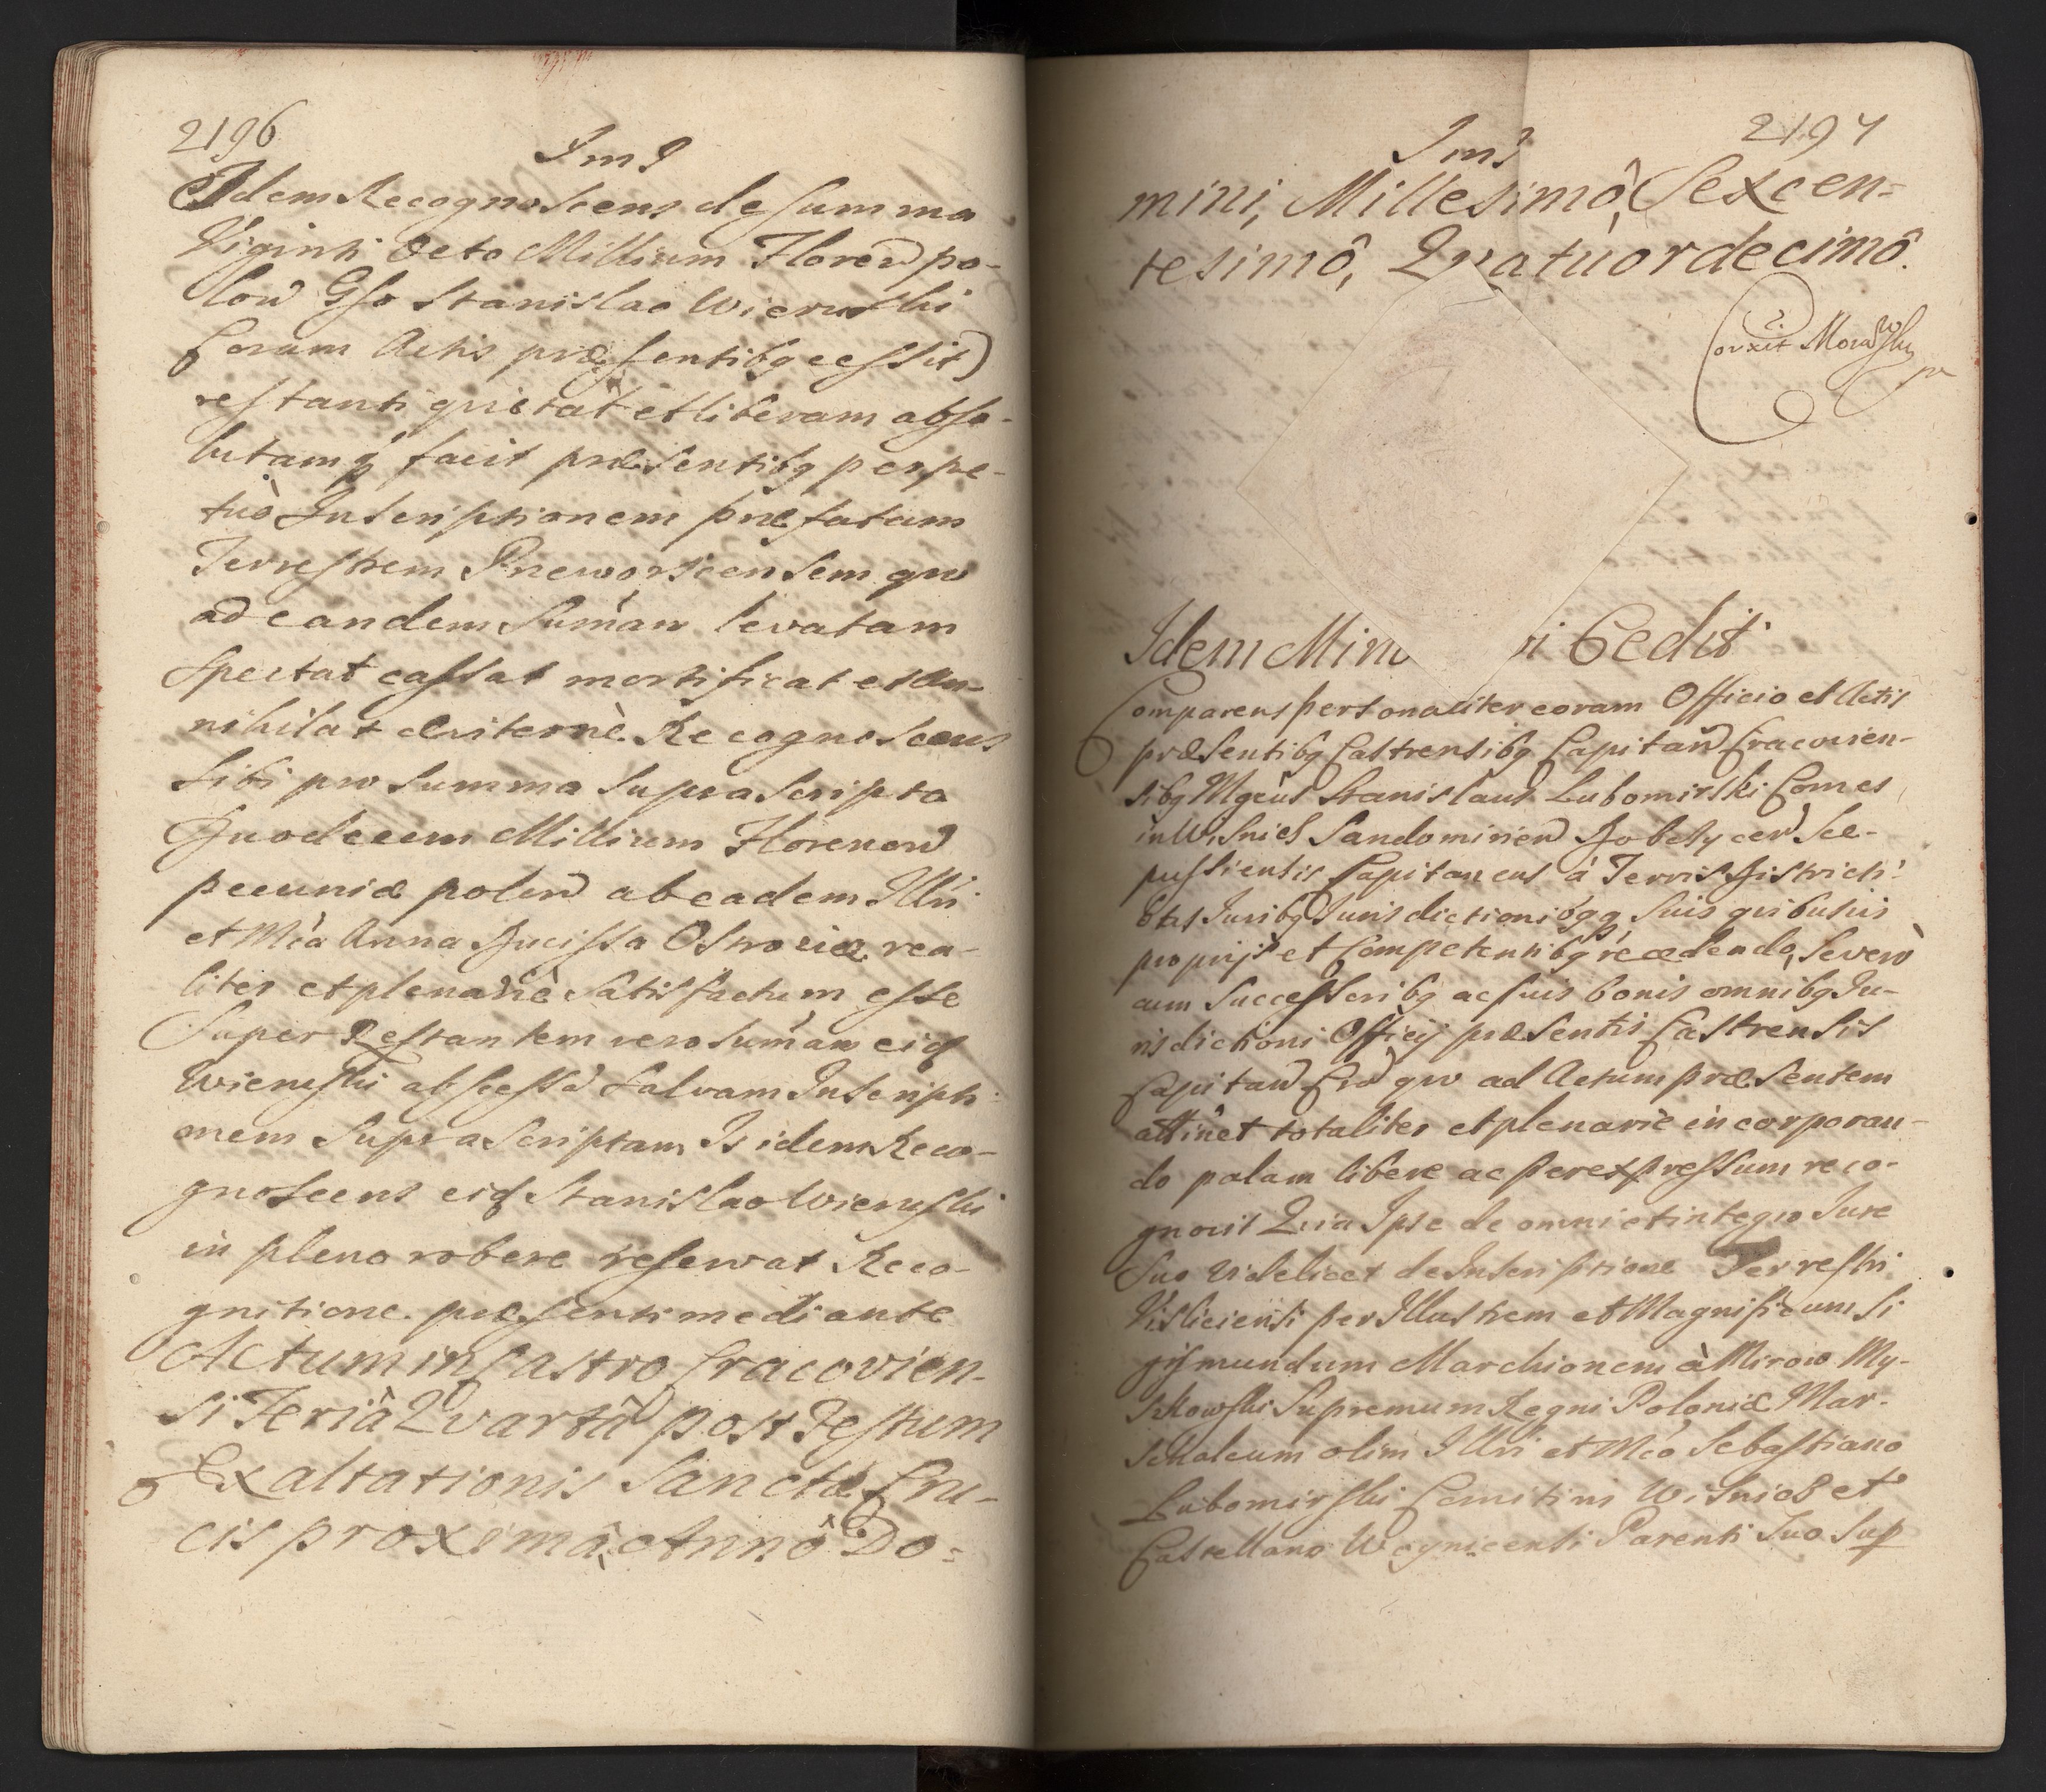 2196
Im?
Idem Recognoscens de summa
Viginti Octo Millium Floren po-
lon Gso Stanislao Wieruski
Coram Actis præsentibq cessit)
restanti quietat et liberam abso-
lutamq facit præsentibq perpe-
tuò Inscriptionem præfatam
Terrestrem Przeworscensem qu
ad eandem Sum̃am levatam
spectat cassat mortificat et an-
nihilat æviternè Recognoscens
sibi pro summa supra scripta
Duodecem Millium Florenor
pecuniæ polon ab eadem Illri
et Mca Anna Ducissa Ostrogiæ rea-
liter et plenariè satisfactum esse
Super Restantem vero sum̃am eidq
Wieruski ab Scessa salvam Inscripti-
onem supra scriptam Is idem Reco-
gnoscens eidq Stanislao Wieruski
in pleno robere reservat Reco-
gnitione præsenti mediante
Actum in Castro Cracovien-
si Feriâ Qvartâ post Festum
Exaltationis Sanctæ Cru-
cis proximâ, Annô Do-
2197
Im?
mini, Millesimô, Sexcen-
tesimô, Qvatuordecimô.
Corrxit Morawsky
mp
Idem Min i Cedit
Comparens personaliter coram Officio et Actis
præsentibq Castrensibq Capitan Cracovien-
sibq Mgcus Stanislaus Lubomirski Comes
in Wisnicz Sandomirien Dobczycen Sce-
pusiensis Capitaneus à Terris Districti-
btus Juribq Jurisdictionibqq suis quibusvis
proprijs et Competentibq recedendo, Severò
cum Successoribq ac suis bonis omnibq Ju-
risdictioni Officij præsentis Castrensis
Capitan Crac qu ad Actum præsentem
attinet totaliter et plenarie incorporan-
do palam libere ac per expressum reco-
gnovit Quia Ipse de omni et integro Jure
suo videlicet de Inscriptione Terrestri
Visliciensi per Illustrem et Magnificum Si
gismundum Marchionem à Mirow My-
szkowski Supremum Regni Poloniæ Mar-
schalcum olim Illri et Mco Sebastiano
Lubomirski Comiti in Wisnicz et
Castellano Woynicensi Parenti suo sup